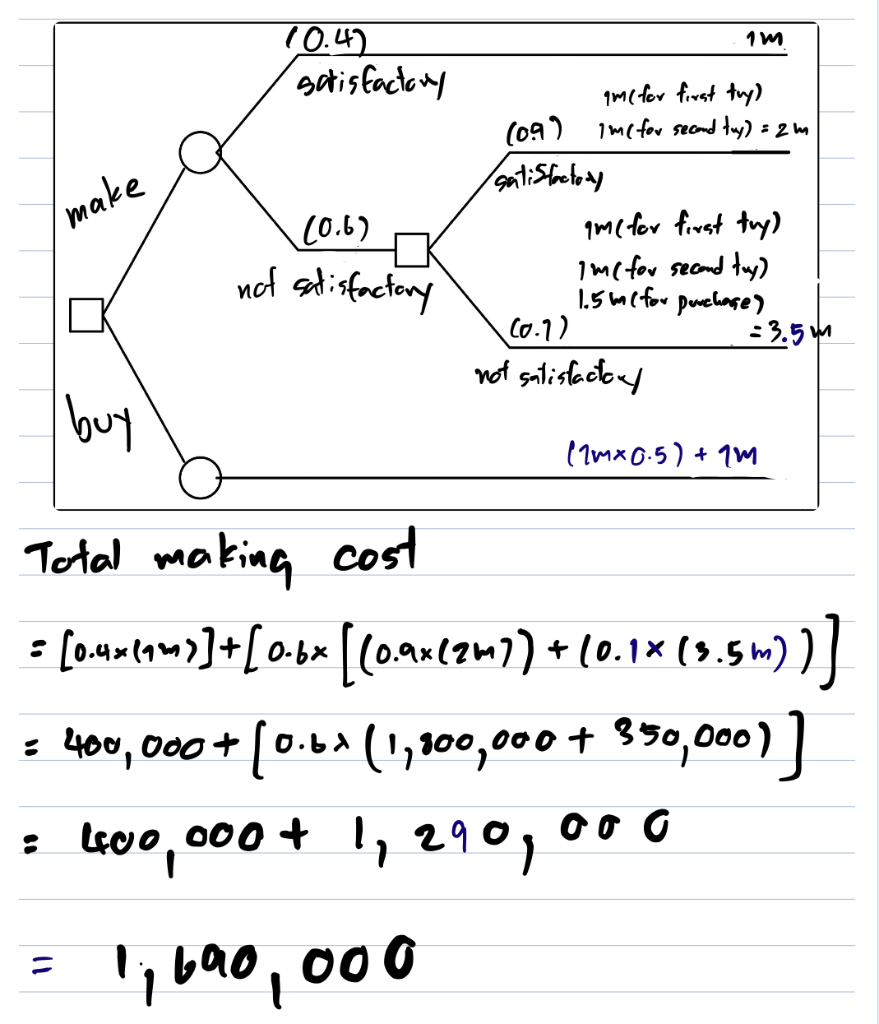 (0.4)
1m
satisfactory
1m(for first try)
(0.9)
1m(for second try) = 2m
satisfactory
make
(0.6)
1m(for first try)
not satisfactory
1m(for second try)
1.5m(for purchase)
(0.1)
= 3.5m
not satisfactory
buy
(1m×0.5) + 1m
Total making cost
= [0.4×(1m)]+[0.6×[(0.9×(2m)) + (0.1×(3.5m))]
= 400,000+[0.6×(1,800,000 + 350,000)]
= 400,000 + 1,290,000
= 1,690,000